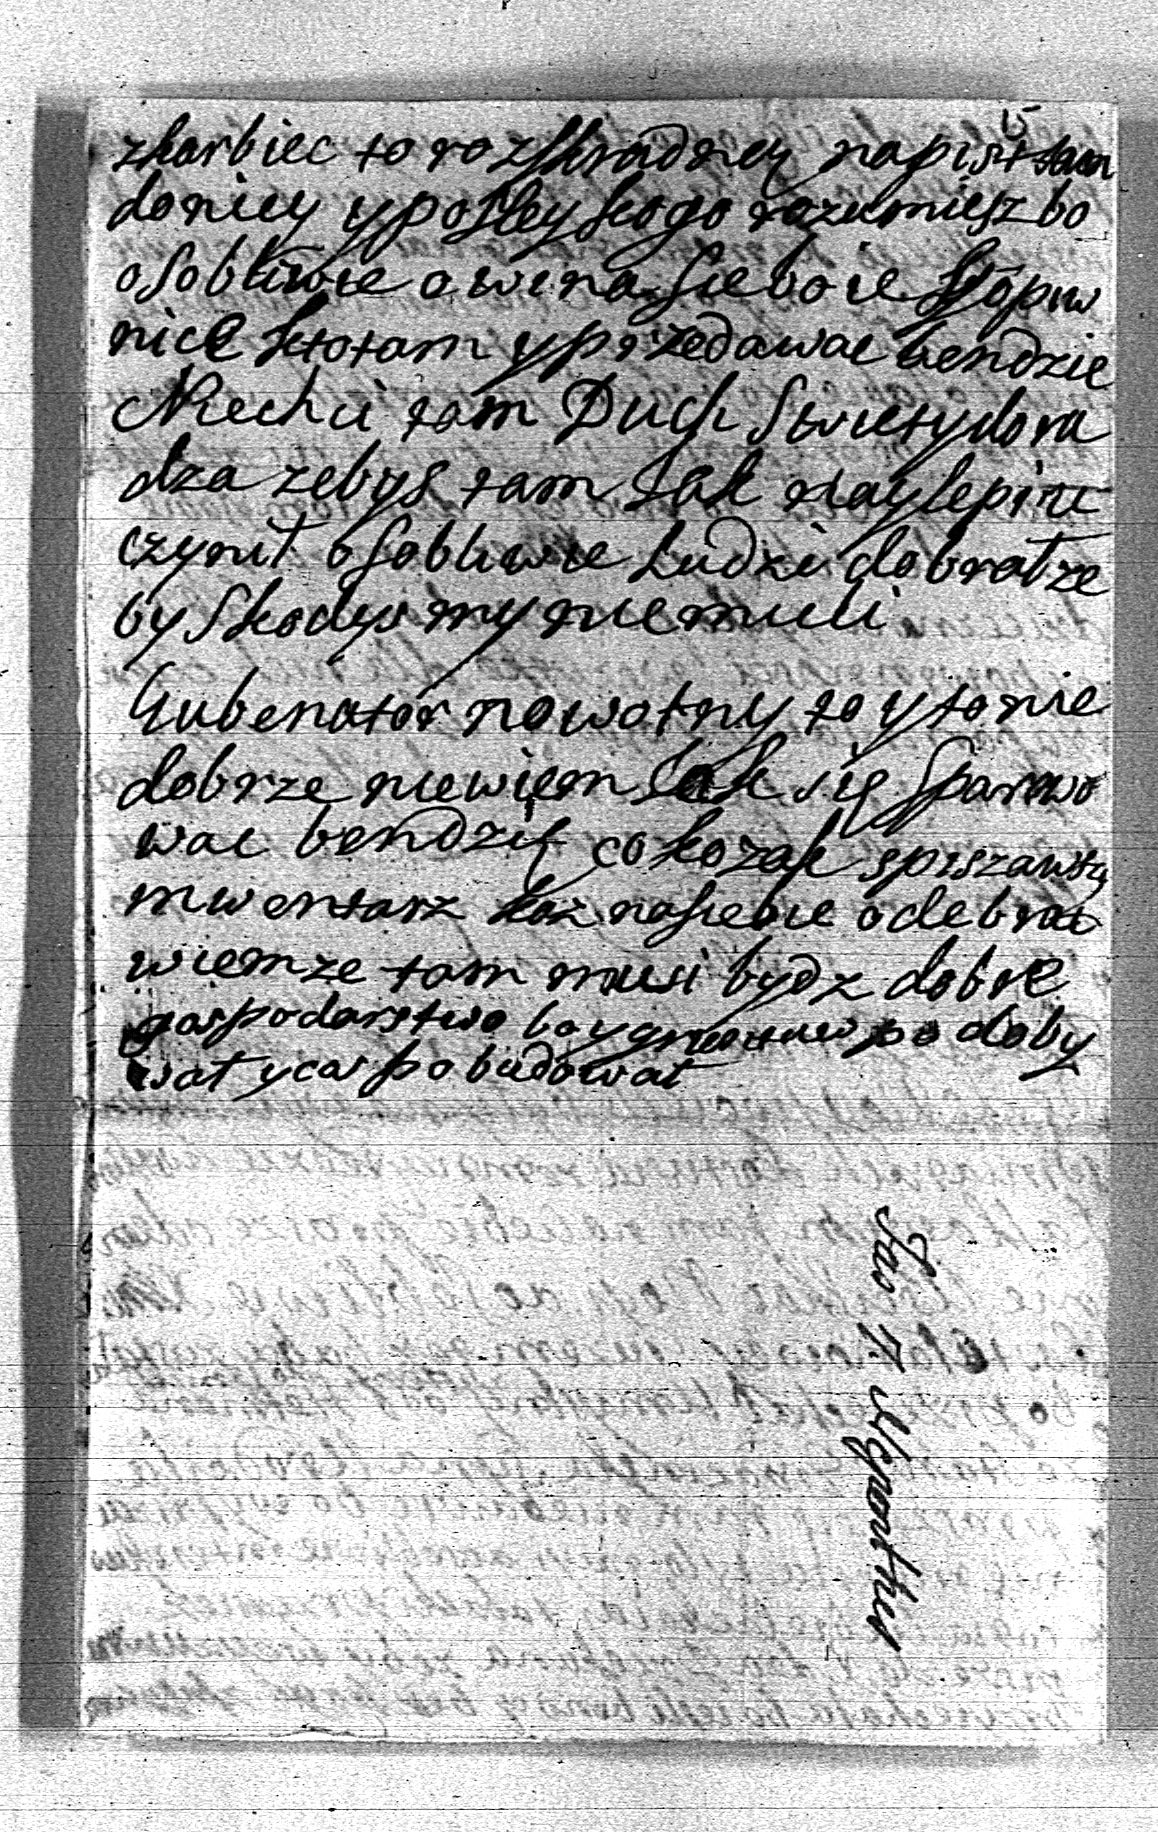 5
zkarbiec to rozkradney napisz tam
do niey y posley kogo rozumiesz bo
osobliwie o wina sie boie y o piw
nice kto tam y przedawac bendzie
Niech ci tam Duch Swiety dora
dza zebys tam Jak naylepiie
czynił osobliwie Ludzi dobrał ze
by skodys my nie mieli
Gubenator nowotny to y to nie
dobrze niewiem Jak się sparawo
wac bendzie co kozak spiszawszy
inwentarz kaz na siebie odebrac
wiem ze tam musi bydz dobre
gospodarstwo bo y gruntuw podoby
wał y cos pobudował
Jas 17